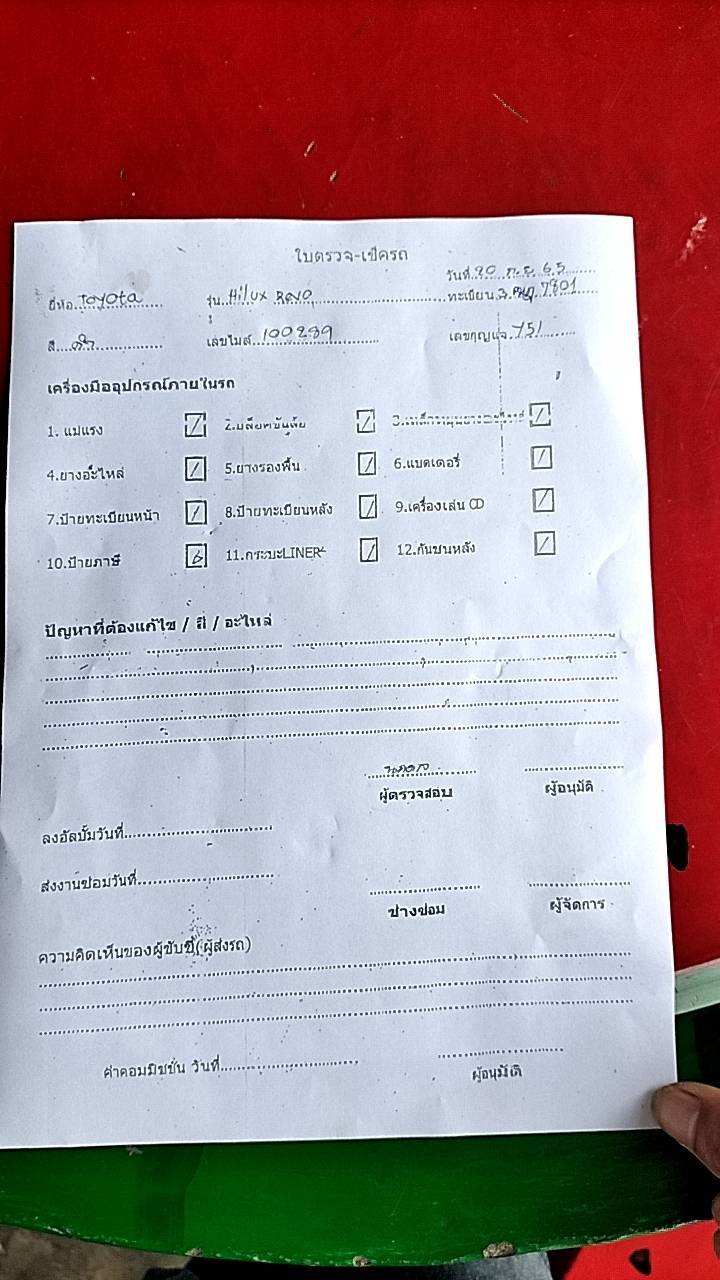 ใบตรวจ-เช็ครถ
วันที่ 20 ก.ย. 65
ยี่ห้อ Toyota รุ่น Hilux Revo ทะเบียน 7801
สี ดำ เลขไมล์ 100289 เลขกุญแจ 751
เครื่องมืออุปกรณ์ภายในรถ
1. แม่แรง / 2.บล็อคขันล้อ / /
4.ยางอะไหล่ / 5.ยางรองพื้น / 6.แบตเตอรี่ /
7.ป้ายทะเบียนหน้า / 8.ป้ายทะเบียนหลัง / 9.เครื่องเล่น CD /
10.ป้ายภาษี 11.กระบะLINER / 12.กันชนหลัง /
ปัญหาที่ต้องแก้ไข / สี / อะไหล่
ผู้ตรวจสอบ ผู้อนุมัติ
ลงอัลบั้มวันที่
ส่งงานซ่อมวันที่
ช่างซ่อม ผู้จัดการ
ความคิดเห็นของผู้ขับขี่(ผู้ส่งรถ)
ค่าคอมมิชชั่น วันที่
ผู้อนุมัติ